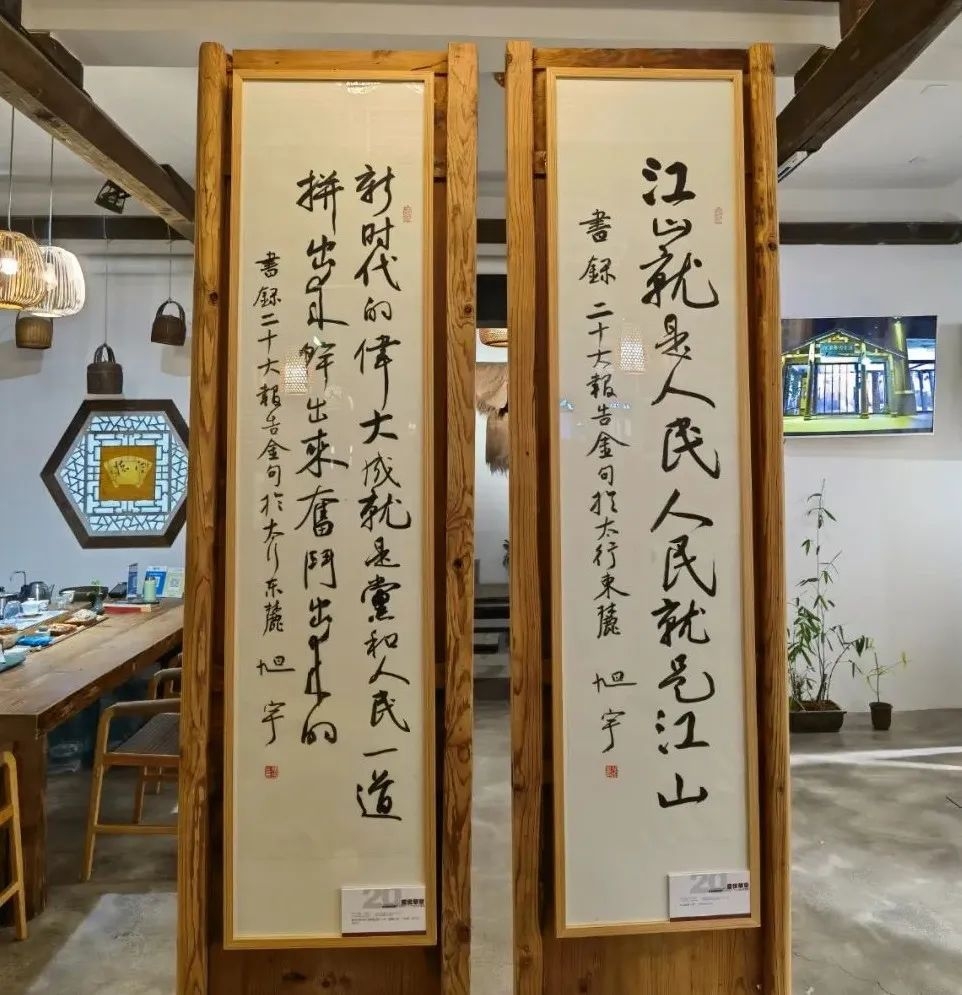 江山就是人民人民就是江山
書録二十大報告金句於太行東麓
旭宇
20
新时代的偉大成就是黨和人民一道
拼出来幹出來奮鬥出来的
書録二十大報告金句於太行东麓
旭宇
20